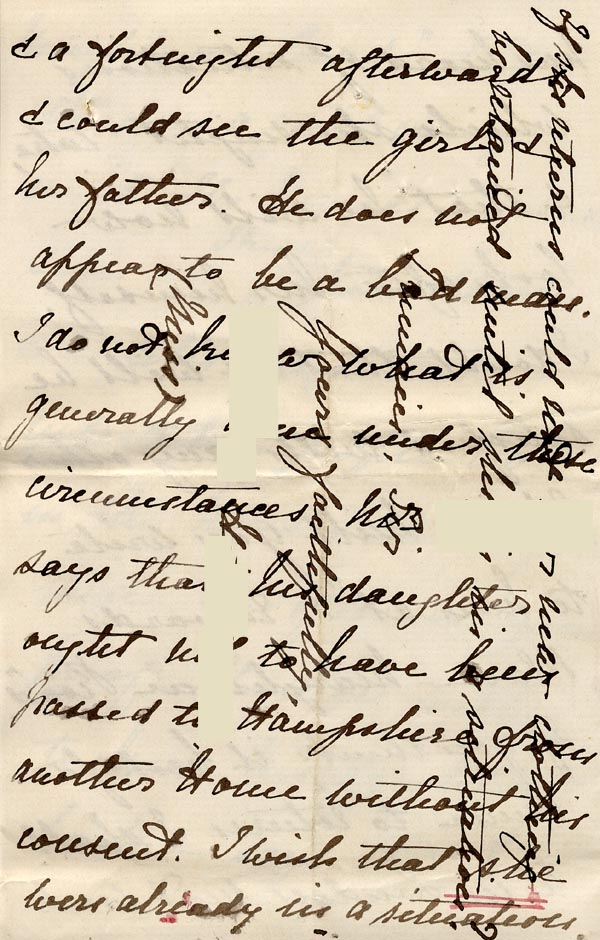 & a fortnight afterwards
I could see the girl &
her father. He does not
appear to be a bad man.
I do not know what is
generally done under these
circumstances, Mr
says that his daughter
ought not to have been
passed to Hampshire from
another Home without his
consent. I wish that she
were already in a situation.
If she returns could
her
be retained until she
is in a situation?
Yours faithfully,